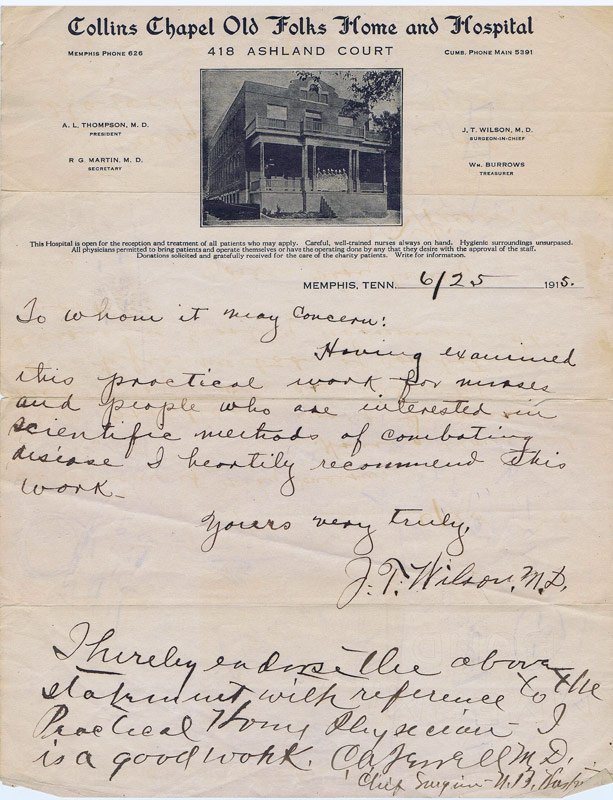 Collins Chapel Old Folks Home and Hospital
MEMPHIS PHONE 626
418 ASHLAND COURT
CUMB. PHONE MAIN 5391
A. L. THOMPSON, M. D.
PRESIDENT
R. G. MARTIN, M. D.
SECRETARY
J. T. WILSON, M. D.
SURGEON-IN-CHIEF
WM. BURROWS
TREASURER
This Hospital is open for the reception and treatment of all patients who may apply. Careful, well-trained nurses always on hand. Hygienic surroundings unsurpased.
All physicians permitted to bring patients and operate themselves or have the operating done by any that they desire with the approval of the staff.
Donations solicited and gratefully received for the care of the charity patients. Write for information.
MEMPHIS, TENN. 6/25 1915.
To whom it may concern:
Having examined
this practical work for nurses
and people who are interested in
scientific methods of combating
disease I heartily recommend this
work-
Yours very truly,
J. T. Wilson, M.D.
I hereby endorse the above
statement with reference to the
Practical Home Physician - I
is a good work. M.D.
Chief Surgeon